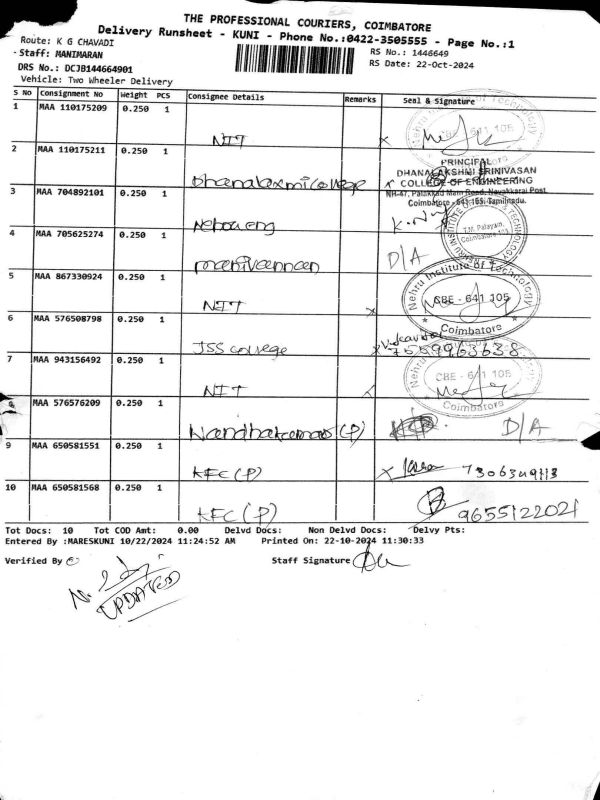 THE PROFESSIONAL COURIERS, COIMBATORE
Delivery Runsheet - KUNI - Phone No.:0422-3505555 - Page No.:1
Route: K G CHAVADI
RS No.: 1446649
Staff: MANIMARAN
RS Date: 22-Oct-2024
DRS No.: DCJB144664901
Vehicle: Two Wheeler Delivery
S No Consignment No Weight PCS Consignee Details Remarks Seal & Signature
1 MAA 110175209 0.250 1 NIT
CBE - 641 105
2 MAA 110175211 0.250 1 Dhanalaxmi college
PRINCIPAL
DHANALAKSHMI SRINIVASAN
COLLEGE OF ENGINEERING
NH-47, Palakkad Main Road, Navakkarai Post,
Coimbatore - 641 105. Tamilnadu.
3 MAA 704892101 0.250 1
T.M. Palayam,
Coimbatore 105
4 MAA 705625274 0.250 1 manivannan D/A
5 MAA 867330924 0.250 1 NIT
Nehru Institute of Technology
CBE - 641 105
Coimbatore
6 MAA 576508798 0.250 1 JSS college
7559963638
7 MAA 943156492 0.250 1 NIT
CBE - 641 105
Coimbatore
8 MAA 576576209 0.250 1 Nandhakumar (P) D/A
9 MAA 650581551 0.250 1 KFC (P)
10 MAA 650581568 0.250 1 KFC (P) 9655122021
Tot Docs: 10 Tot COD Amt: 0.00 Delvd Docs: Non Delvd Docs: Delvy Pts:
Entered By :MARESKUNI 10/22/2024 11:24:52 AM Printed On: 22-10-2024 11:30:33
Verified By Staff Signature
UPDATED